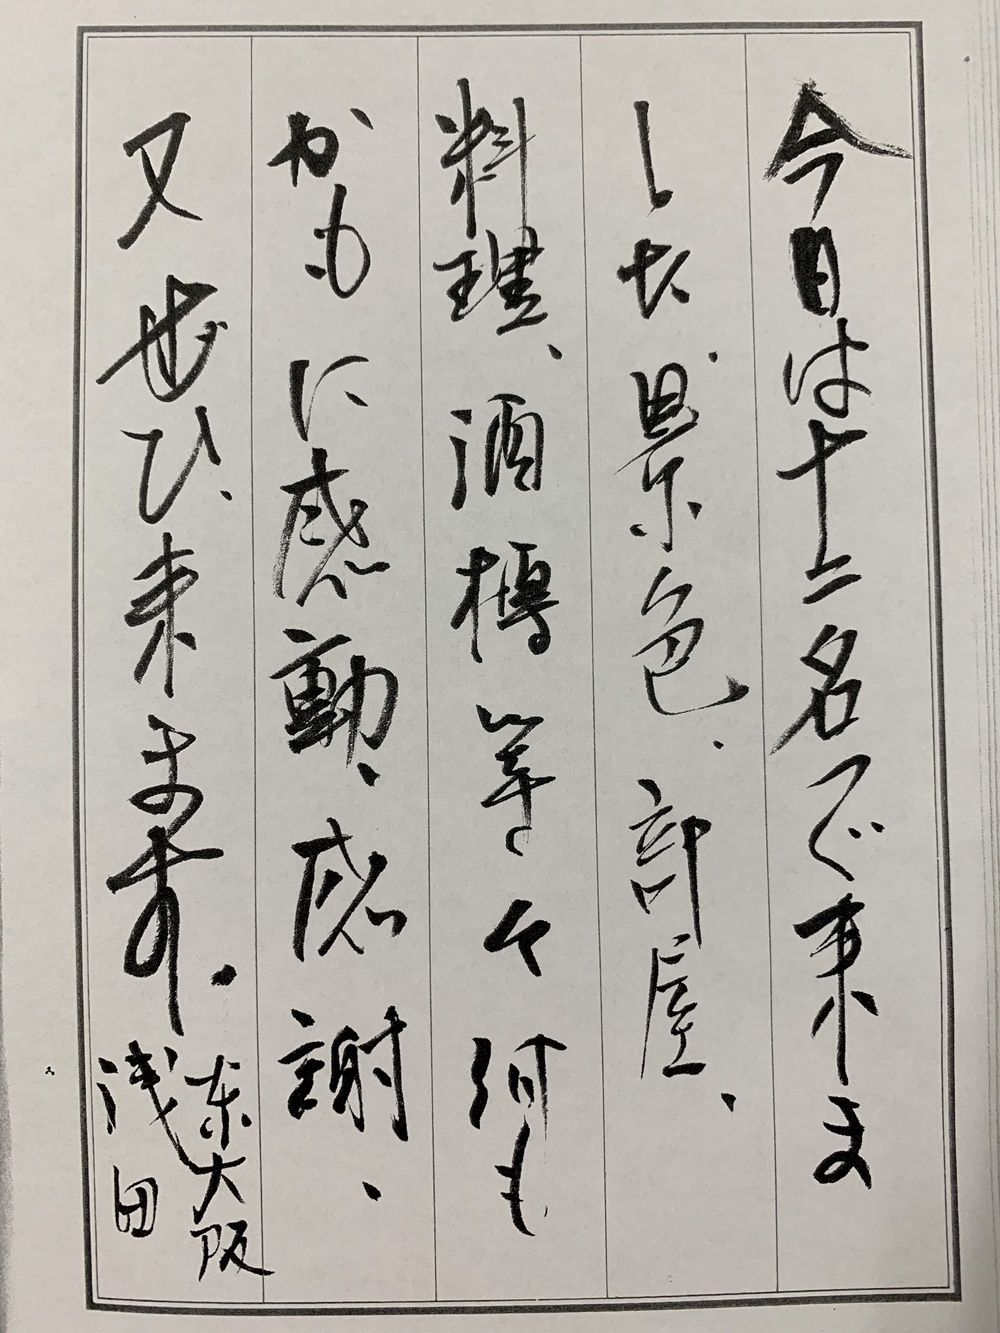 今日は十二名で来ま
した。景色、部屋、
料理、酒樽等々何も
かもに感動、感謝、
又ぜひ来ます。
東大阪
浅田